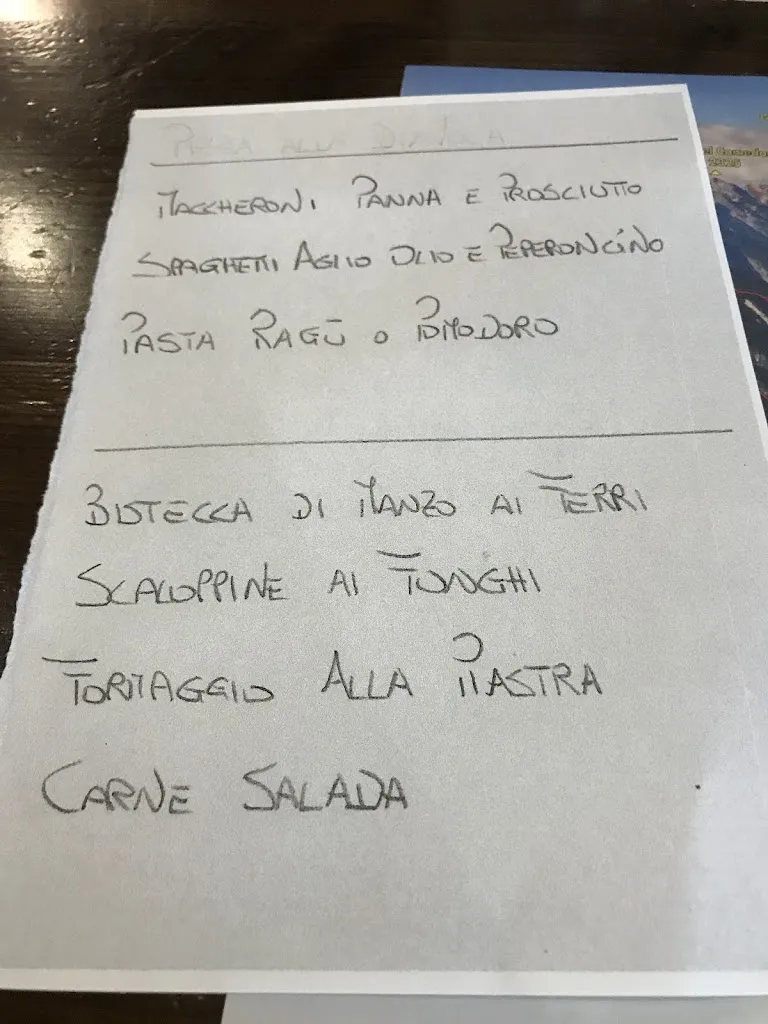 MACCHERONI PANNA E PROSCIUTTO
SPAGHETTI AGLIO OLIO E PEPERONCINO
PASTA RAGÙ O POMODORO
BISTECCA DI MANZO AI FERRI
SCALOPPINE AI FUNGHI
FORMAGGIO ALLA PIASTRA
CARNE SALADA